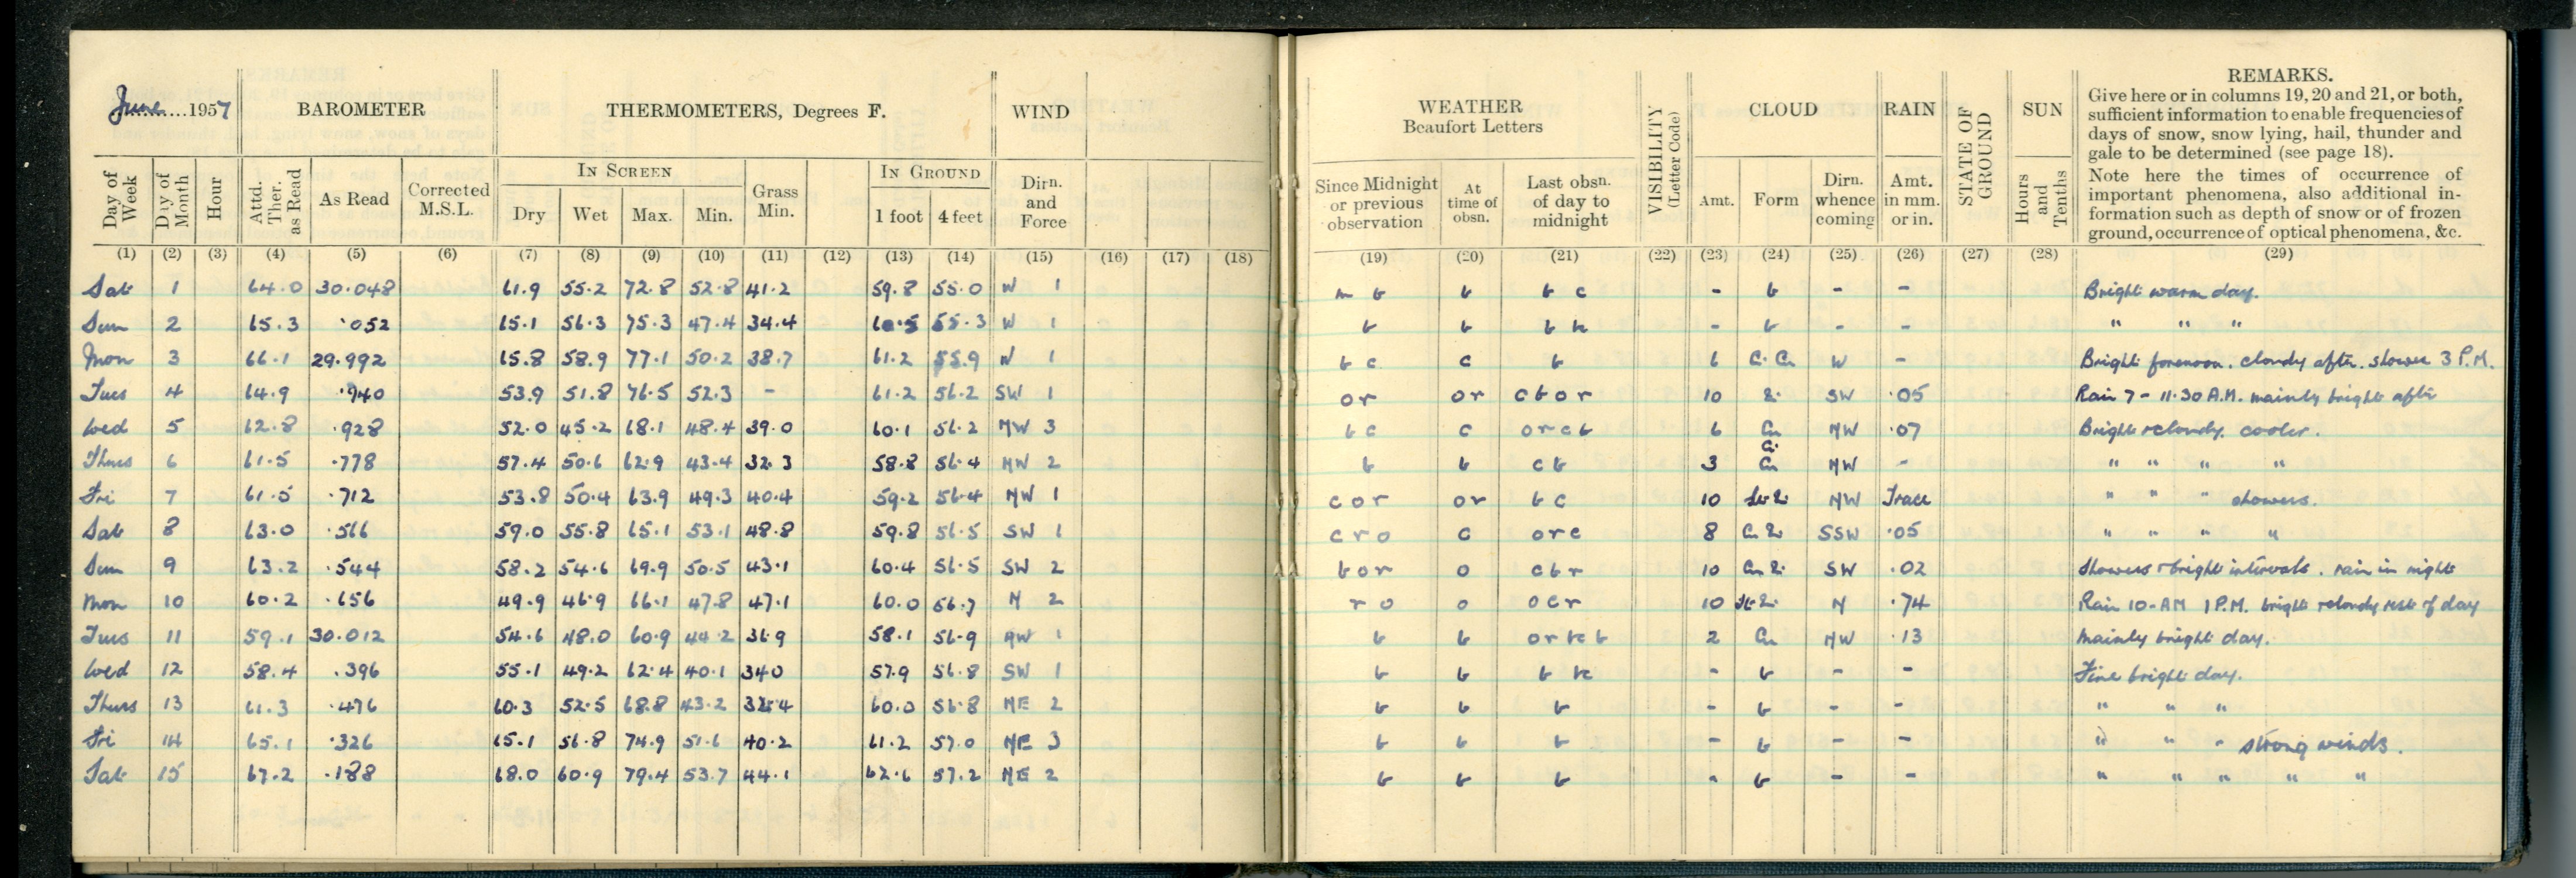 June 1957 BAROMETER THERMOMETERS, Degrees F. WIND
Day of Week Day of Month Hour Attd. Ther. as Read As Read Corrected M.S.L. IN SCREEN Dry Wet Max. Min. Grass Min. IN GROUND 1 foot 4 feet Dirn. and Force
(1) (2) (3) (4) (5) (6) (7) (8) (9) (10) (11) (12) (13) (14) (15) (16) (17) (18)
Sat 1 64.0 30.048 61.9 55.2 72.8 52.8 41.2 59.8 55.0 W 1
Sun 2 65.3 .052 65.1 56.3 75.3 47.4 34.4 60.5 55.3 W 1
Mon 3 66.1 29.992 65.8 58.9 77.1 50.2 38.7 61.2 55.9 W 1
Tues 4 64.9 .940 53.9 51.8 76.5 52.3 - 61.2 56.2 SW 1
Wed 5 62.8 .928 52.0 45.2 68.1 48.4 39.0 60.1 56.2 NW 3
Thurs 6 61.5 .778 57.4 50.6 62.9 43.4 32.3 58.8 56.4 NW 2
Fri 7 61.5 .712 53.8 50.4 63.9 49.3 40.4 59.2 56.4 NW 1
Sat 8 63.0 .566 59.0 55.8 65.1 53.1 48.8 59.8 56.5 SW 1
Sun 9 63.2 .544 58.2 54.6 69.9 50.5 43.1 60.4 56.5 SW 2
Mon 10 60.2 .656 49.9 46.9 66.1 47.8 47.1 60.0 56.7 N 2
Tues 11 59.1 30.012 54.6 48.0 60.9 44.2 36.9 58.1 56.9 NW 1
Wed 12 58.4 .396 55.1 49.2 62.4 40.1 34.0 57.9 56.8 SW 1
Thurs 13 61.3 .476 60.3 52.5 68.8 43.2 60.0 56.8 NE 2
Fri 14 65.1 .326 65.1 56.8 74.9 51.6 40.2 61.2 57.0 NE 3
Sat 15 67.2 .188 68.0 60.9 79.4 53.7 44.1 62.6 57.2 NE 2
WEATHER Beaufort Letters VISIBILITY (Letter Code) CLOUD RAIN STATE OF GROUND SUN REMARKS.
Give here or in columns 19, 20 and 21, or both,
sufficient information to enable frequencies of
days of snow, snow lying, hail, thunder and
gale to be determined (see page 18).
Note here the times of occurrence of
important phenomena, also additional in-
formation such as depth of snow or of frozen
ground, occurrence of optical phenomena, &c.
Since Midnight or previous observation At time of obsn. Last obsn. of day to midnight Amt. Form Dirn. whence coming Amt. in mm. or in. Hours and Tenths
(19) (20) (21) (22) (23) (24) (25) (26) (27) (28) (29)
m b b b c - b - - Bright warm day.
b b b - b - - " " "
b c c b 6 W - Bright forenoon. cloudy after. shower 3 P.M.
o r o r c b o r 10 SW .05 Rain 7 - 11.30 A.M. mainly bright after
b c c o r c b 6 Cu NW .07 Bright & cloudy. cooler.
b b c b 3 Ci Cu NW - " " " "
c o r o r b c 10 NW Trace " " " showers.
c r o c o r c 8 SSW .05 " " " "
b o r o c b r 10 SW .02 Showers & bright intervals. rain in night
r o o o c r 10 N .74 Rain 10-AM 1 P.M. bright & cloudy rest of day
b b 2 Cu NW .13 Mainly bright day.
b b b - b - - Fine bright day.
b b b - b - - " " "
b b b - b - - " " " strong winds.
b b b - b - - " " " " "